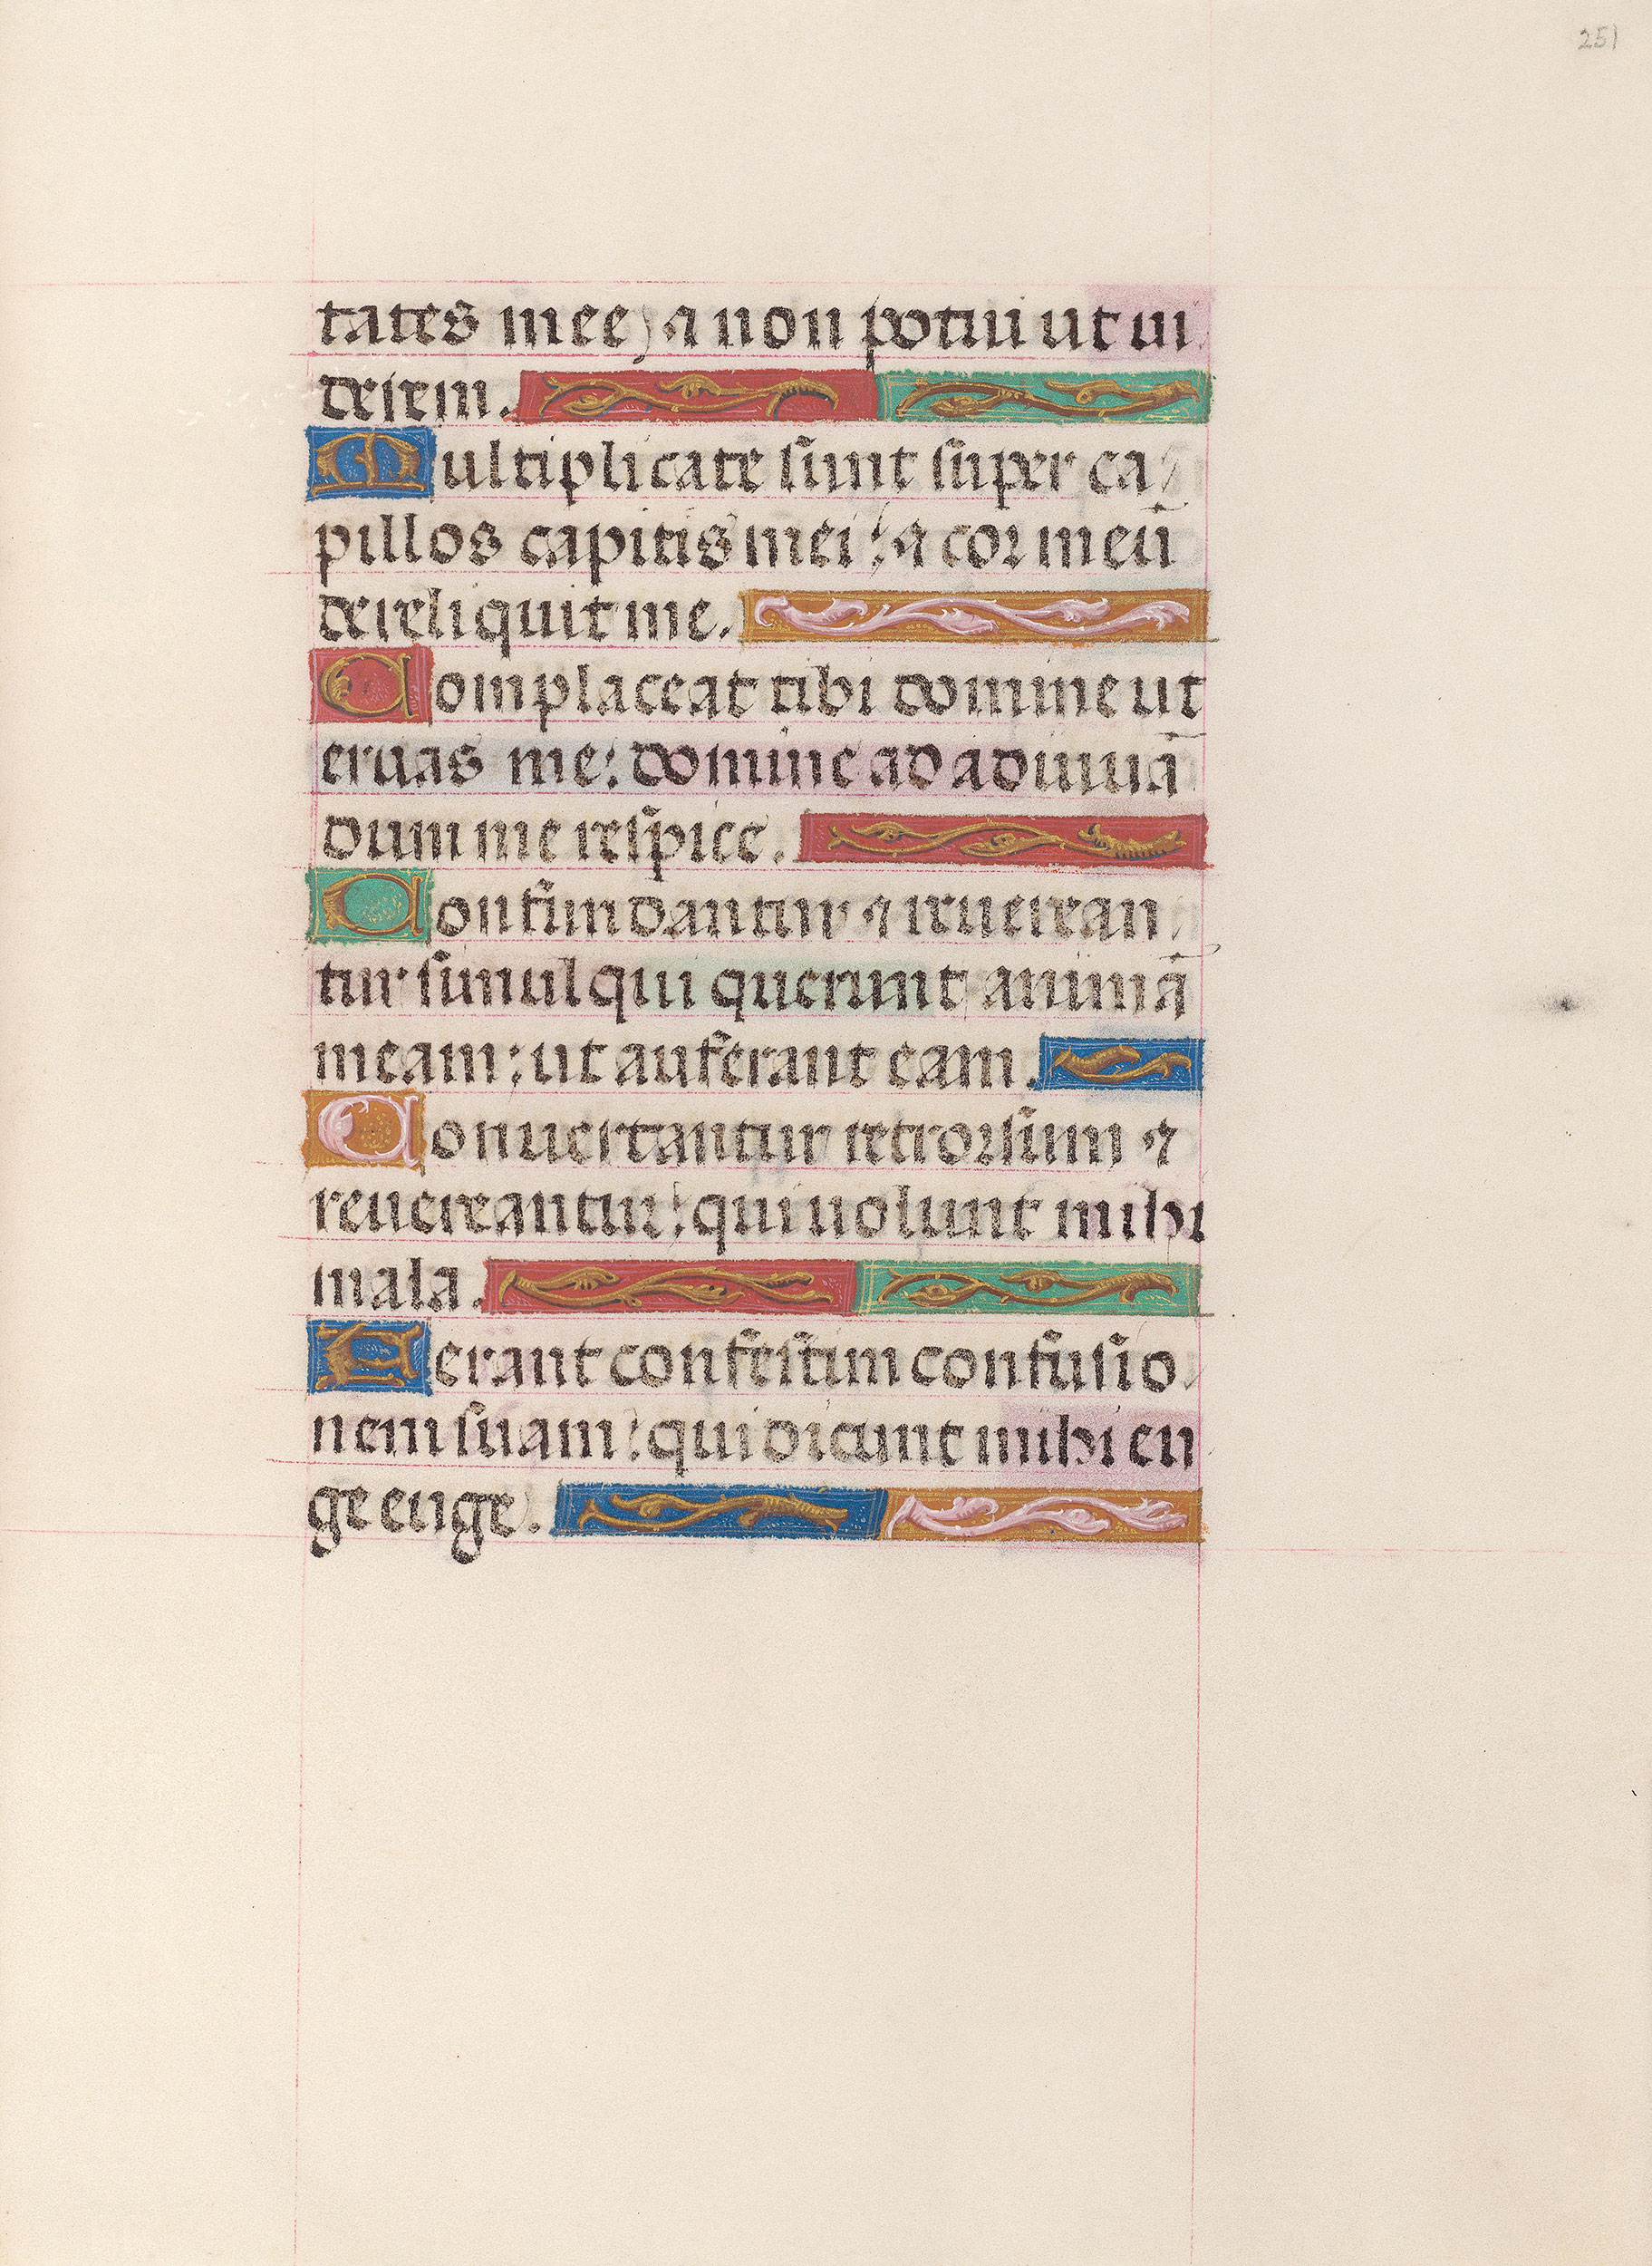 251
tates mee) ⁊ non potui ut ui
derem.
Multiplicate sunt super ca
pillos capitis mei: ⁊ cor meū
dereliquit me.
Complaceat tibi domine ut
eruas me: domine ad adiuuā
dum me respice.
Confundantur ⁊ reuerean
tur simul qui querunt animā
meam: ut auferant eam.
Conuertantur retrorsum ⁊
reuereantur: qui uolunt mihi
mala.
Ferant confestim confusio
nem suam: qui dicunt mihi eu
ge euge.